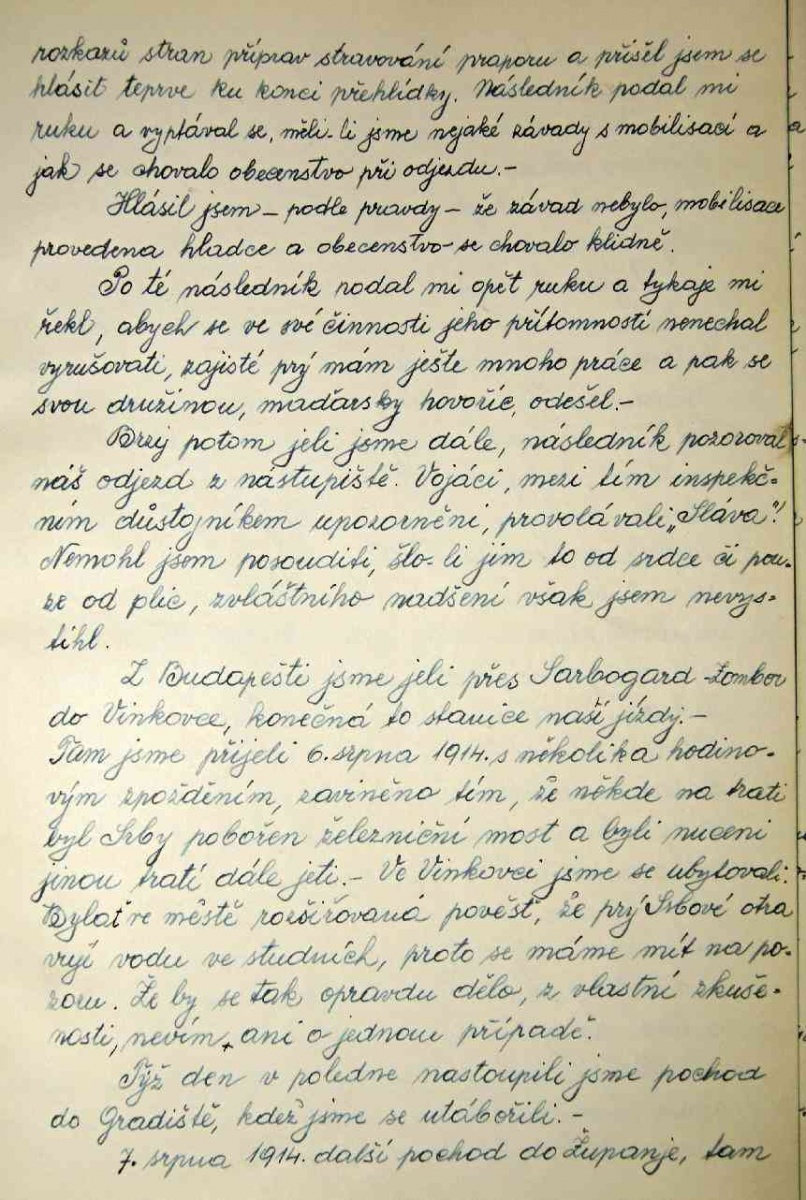 rozkazů stran příprav stravování praporu a přišel jsem se
hlásit teprve ku konci přehlídky. Následník podal mi
ruku a vyptával se, měli-li jsme nejaké závady s mobilisací a
jak se chovalo obecenstvo při odjezdu.-
Hlásil jsem - podle pravdy - že závad nebylo, mobilisace
provedena hladce a obecenstvo-se chovalo klidně.
Po té následník podal mi opět ruku a tykaje mi
řekl, abych se ve své činnosti jeho přítomností nenechal
vyrušovati, zajisté prý mám ješte mnoho práce a pak se
svou družinou, maďarsky hovoříc, odešel.-
Brzy potom jeli jsme dále, následník pozoroval
náš odjezd z nástupiště. Vojáci, mezi tím inspekč=
ním důstojníkem upozorněni, provolávali „Sláva"!
Nemohl jsem posouditi, šlo-li jim to od srdce či pou-
ze od plic, zvláštního nadšení však jsem nevys=
tihl.
Z Budapešti jsme jeli přes Sarbogard-Zombor
do Vinkovce, konečná to stanice naší jízdy.-
Tam jsme přijeli 6. srpna 1914. s několika hodino-
vým zpožděním, zaviněno tím, že někde na trati
byl Srby pobořen železniční most a byli nuceni
jinou tratí dále jeti.- Ve Vinkovci jsme se ubytovali.
Bylať ve městě rozšiřovaná pověst, že prý Srbové otra
vují vodu ve studních, proto se máme mít na po-
zoru. Že by se tak opravdu dělo, z vlastní zkuše-
nosti, nevím, ani o jednou případě.
Týž den v poledne nastoupili jsme pochod
do Gradiště, kdež jsme se utábořili.-
7. srpna 1914. další pochod do Županje, tam